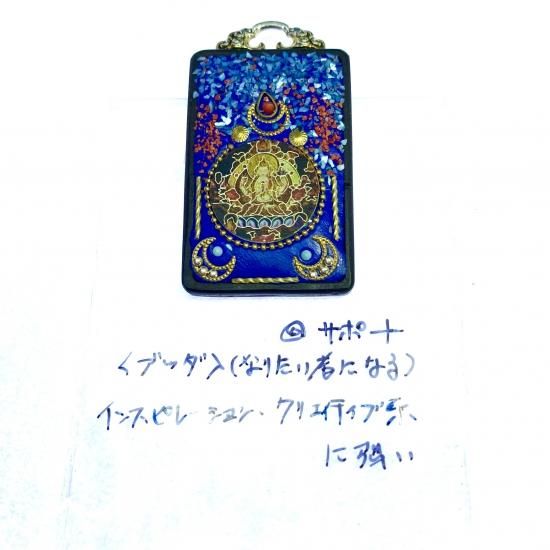 ◎ サポート
<ブッダ入(なりたい者になる)
インスピレーション、クリエイティブ系、
に強い